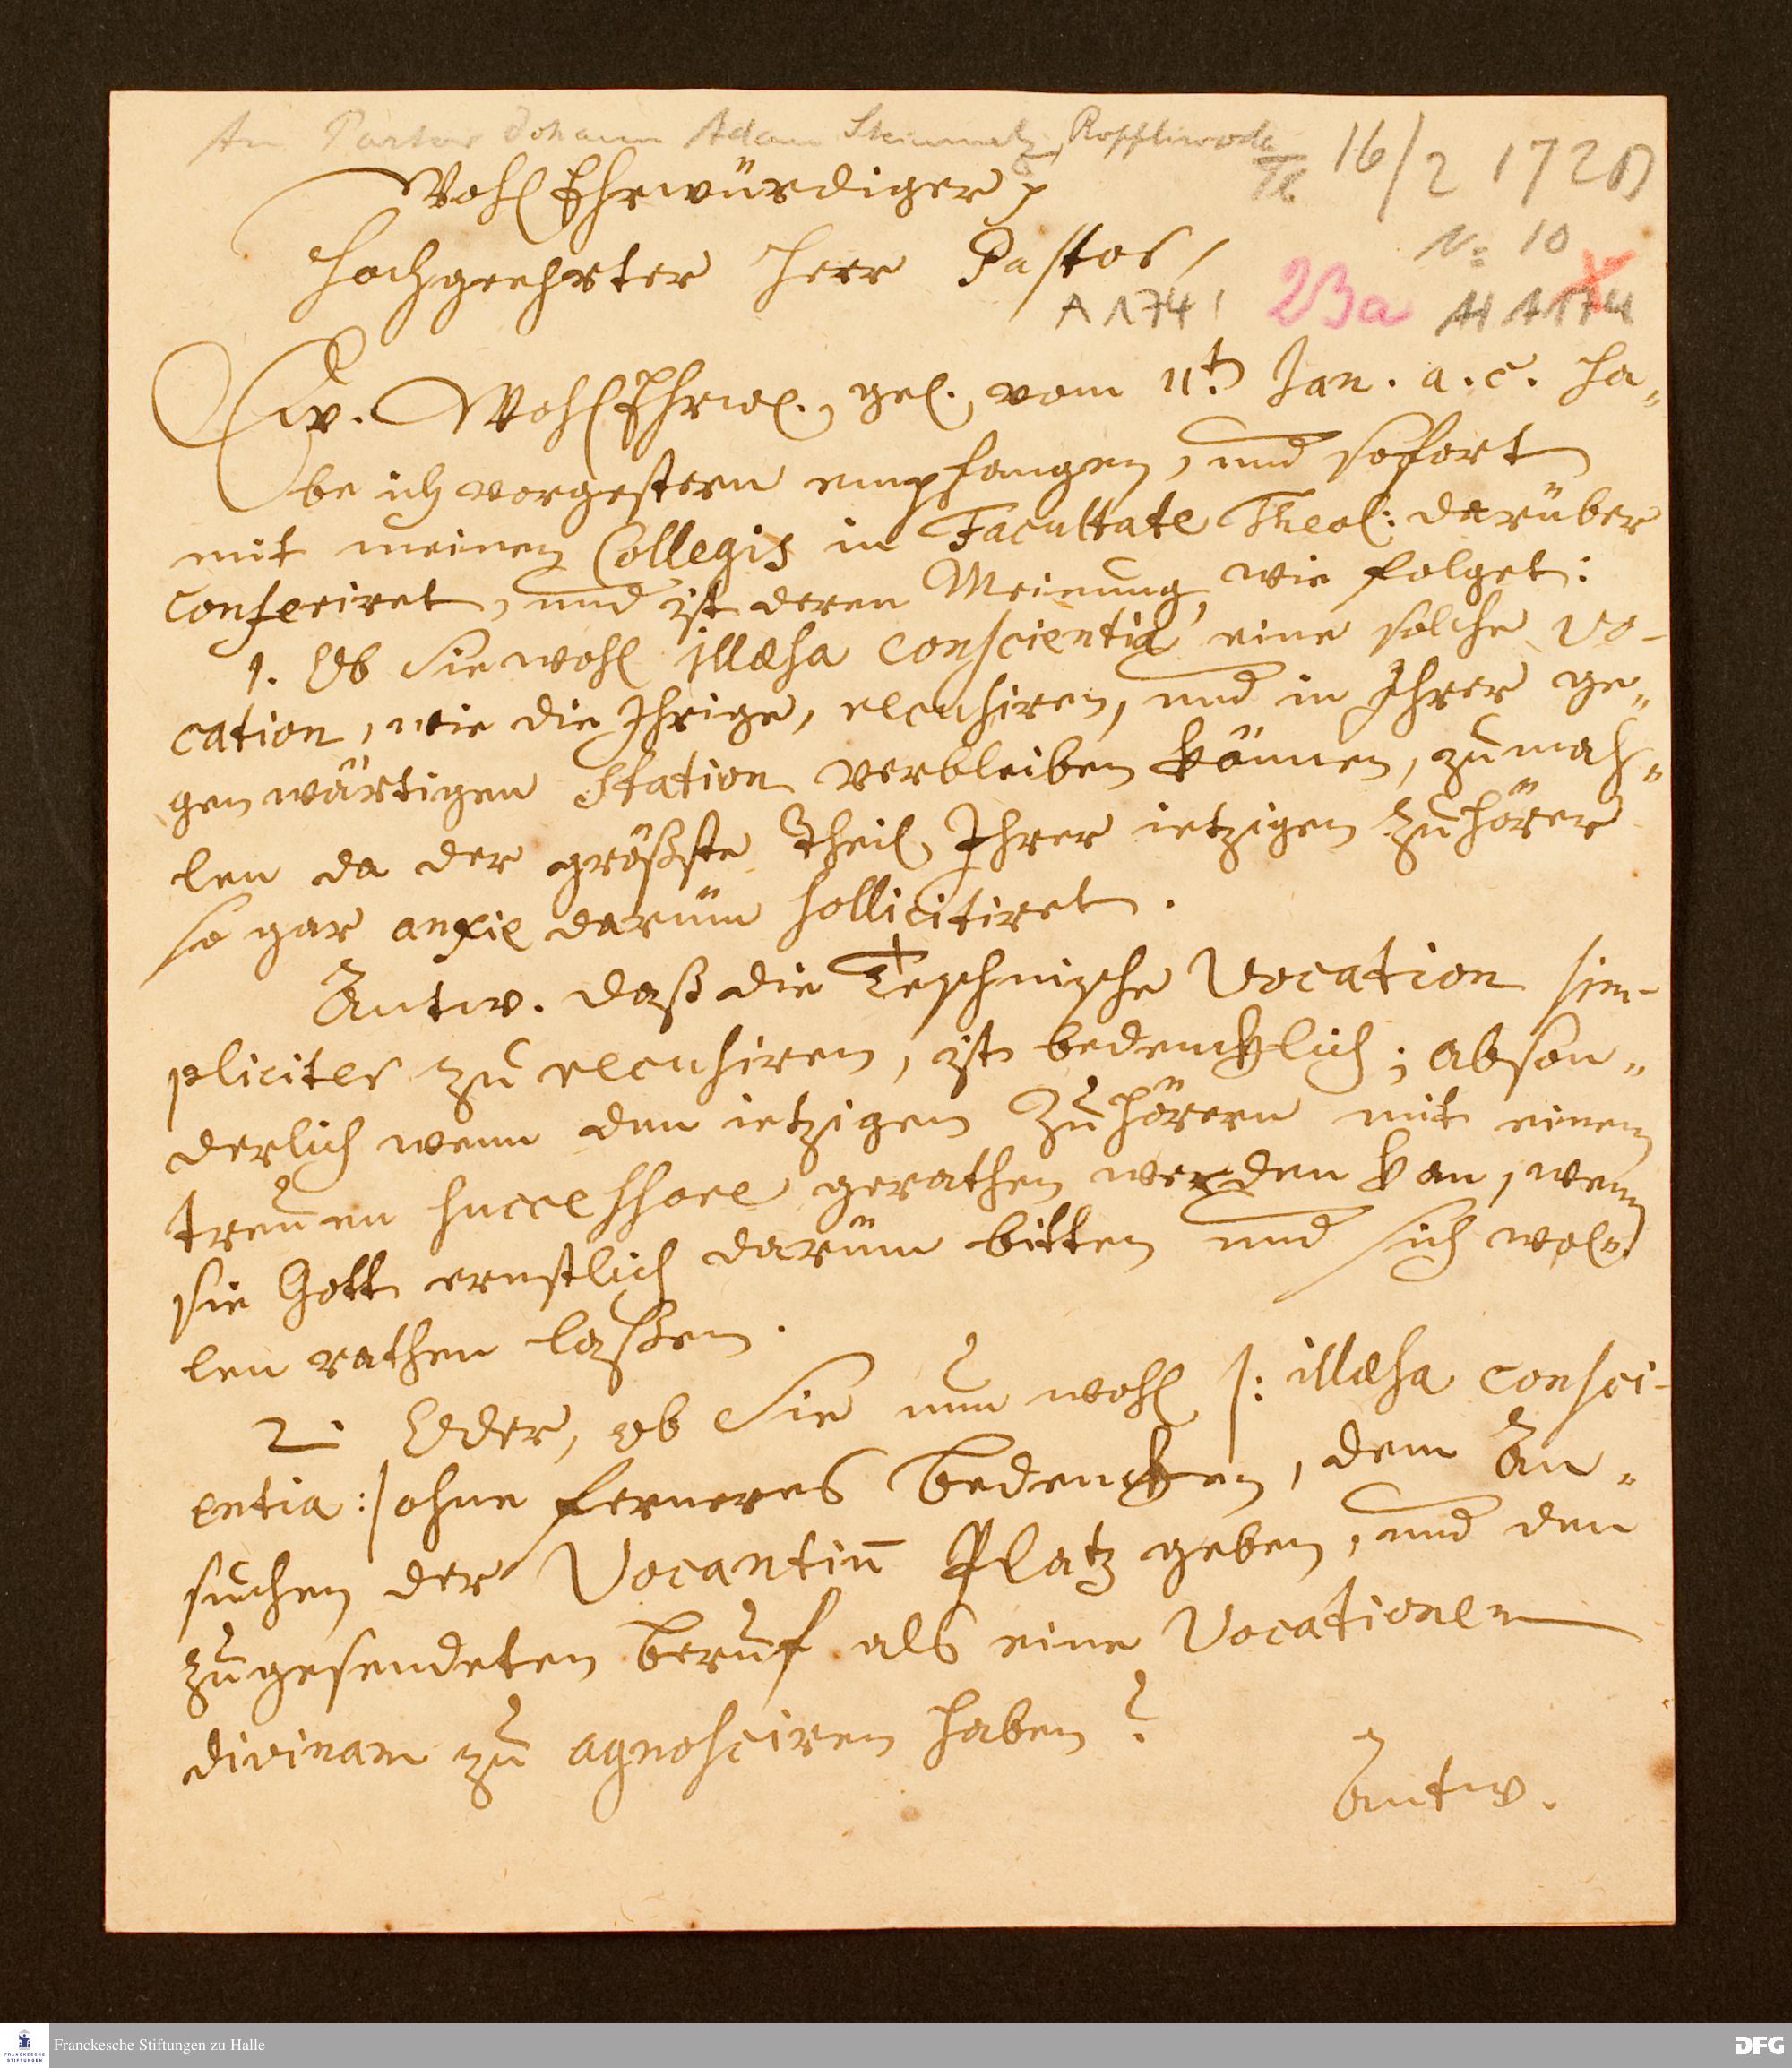 An Pastor Johann Adam Steinmetz,
16/2 1720
Wohl Ehrwürdiger,
N: 10
Hochgeehrter Herr Pastor,
A 174! 23a A 174
Ew. WohlEhrw., gel. vom 11t. Jan. a. c. ha-
be ich vorgestern empfangen, und sofort
mit meinen Collegis in Facultate Theol: darüber
conferiret, und ist deren Meinung, wie folget:
1. Ob Sie wohl illæsa conscientia eine solche vo-
cation, wie die Ihrige, recusiren, und in Ihrer ge-
genwärtigen Station verbleiben können, zumah-
len da der größste Theil Ihrer ietzigen Zuhörer
so gar anxie darüm sollicitiret.
Antw. daß die Teschnische Vocation sim-
pliciter zu recusiren, ist bedencklich; abson-
derlich wenn den ietzigen Zuhörern mit einem
treuen successore gerathen werden kan, wenn
sie Gott ernstlich darüm bitten und sich wol-
len rathen laßen.
2. Oder, ob Sie nun wohl /: illæsa consci-
entia :/ ohne ferneres Bedencken, dem An-
suchen der Vocantiū Platz geben, und den
zugesendeten Beruf als eine Vocationem
divinam zu agnosciren haben?
Antw.
Franckesche Stiftungen zu Halle
DFG